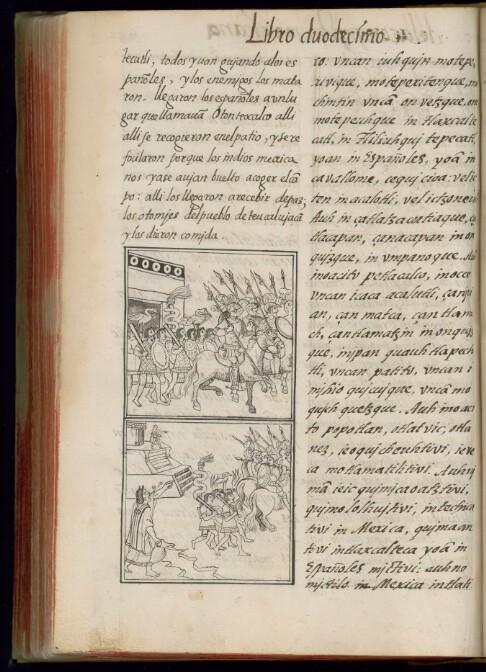 Libro duodecimo
tecutli, todos yuan guiando a los es
pañoles, y los enemigos los mata
ron. llegaron los españoles a vn lu
gar que llamauā Otonteocalco alli
alli se recogieron en el patio, y se re
focilaron porque los indios mexica
nos ya se auian buelto a coger el cā
po: alli los llegaron a recebir de paz
los otomjes del pueblo de teucalujacā
y los dieron comjda.
ro. vncan iuhqujn motepe,
xivique, motepexitenque, m
chintin vncā on vetzque, on
motepeuhque in tlaxcalte
catl, in tliliuhquj tepecatl,
yoan in Españoles, yoā in
cavallome, cequi cioa: vel ic
ten in acalotli, vel ic tzoneuh
Auh in çatlatzacatiaque, ça
tlacapan, çanacapan in on
quizque, in vmpanoque. Auh
in oacito petlacalco, in occe
vncan icaca acalutli, çan yui
an, çan matca, çan tlama
ch, çan tlamatzin in onquiz
que, in jpan quauhtlapech
tli, vncan patito, vncan i
mjhio quicujque, vncā mo
qujchquetzque. Auh in oaci
to popotlan, otlatvic, otla
nez, ie oqujcheuhtivi, ie ve
ca motlamattitivi. Auh nj
mā ie ic qujmjcaoatztivi,
qujmololhujtivi, intech
tivi in Mexica, qujmaan
tivi in tlaxcalteca yoā in
Españoles mjctivi: auh no
mjctilo in Mexica in tlati